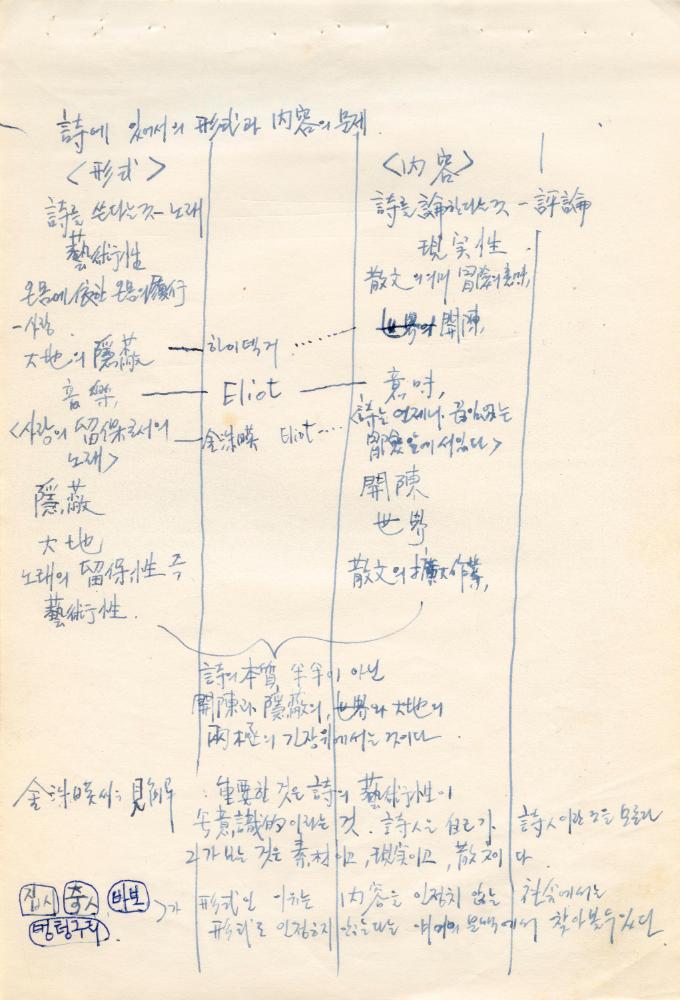 詩에 있어서의 形式과 內容의 문제
<形式>
<內容>
詩를 쓴다는것 - 노래
詩를 論한다는것 - 評論
藝術性
現実性
온몸에 依한 온몸의 履行
散文의 의미 冒險의 意味,
-사랑
大地의 隱蔽 — 하이덱거 ······ 世界의 開陳,
音樂, — Eliot — 意味,
<사랑의 留保로서의 — 金洙暎 Eliot ····
노래>
<詩는 언제나 끊임없는
冒險 앞에 서있다>
隱蔽
開陳
大地
世界
노래의 留保性 즉
散文의 擴大作業,
藝術性.
詩의 本質, 半半이 아닌
開陳과 隱蔽의, 世界와 大地의
兩極의 긴장위에서는 것이다.
金洙暎씨 見解 : 重要한 것은 詩의 藝術性이
無意識的이라는 것. 詩人은 自己가 詩人이란 것을 모른다
그가 보는 것은 素材이고, 現実이고, 散文이다.
바보
멍텅구리
形式인 이유는 內容을 인정치 않는
形式도 인정하지 않는다는 문맥에서 찾아볼수 있다.